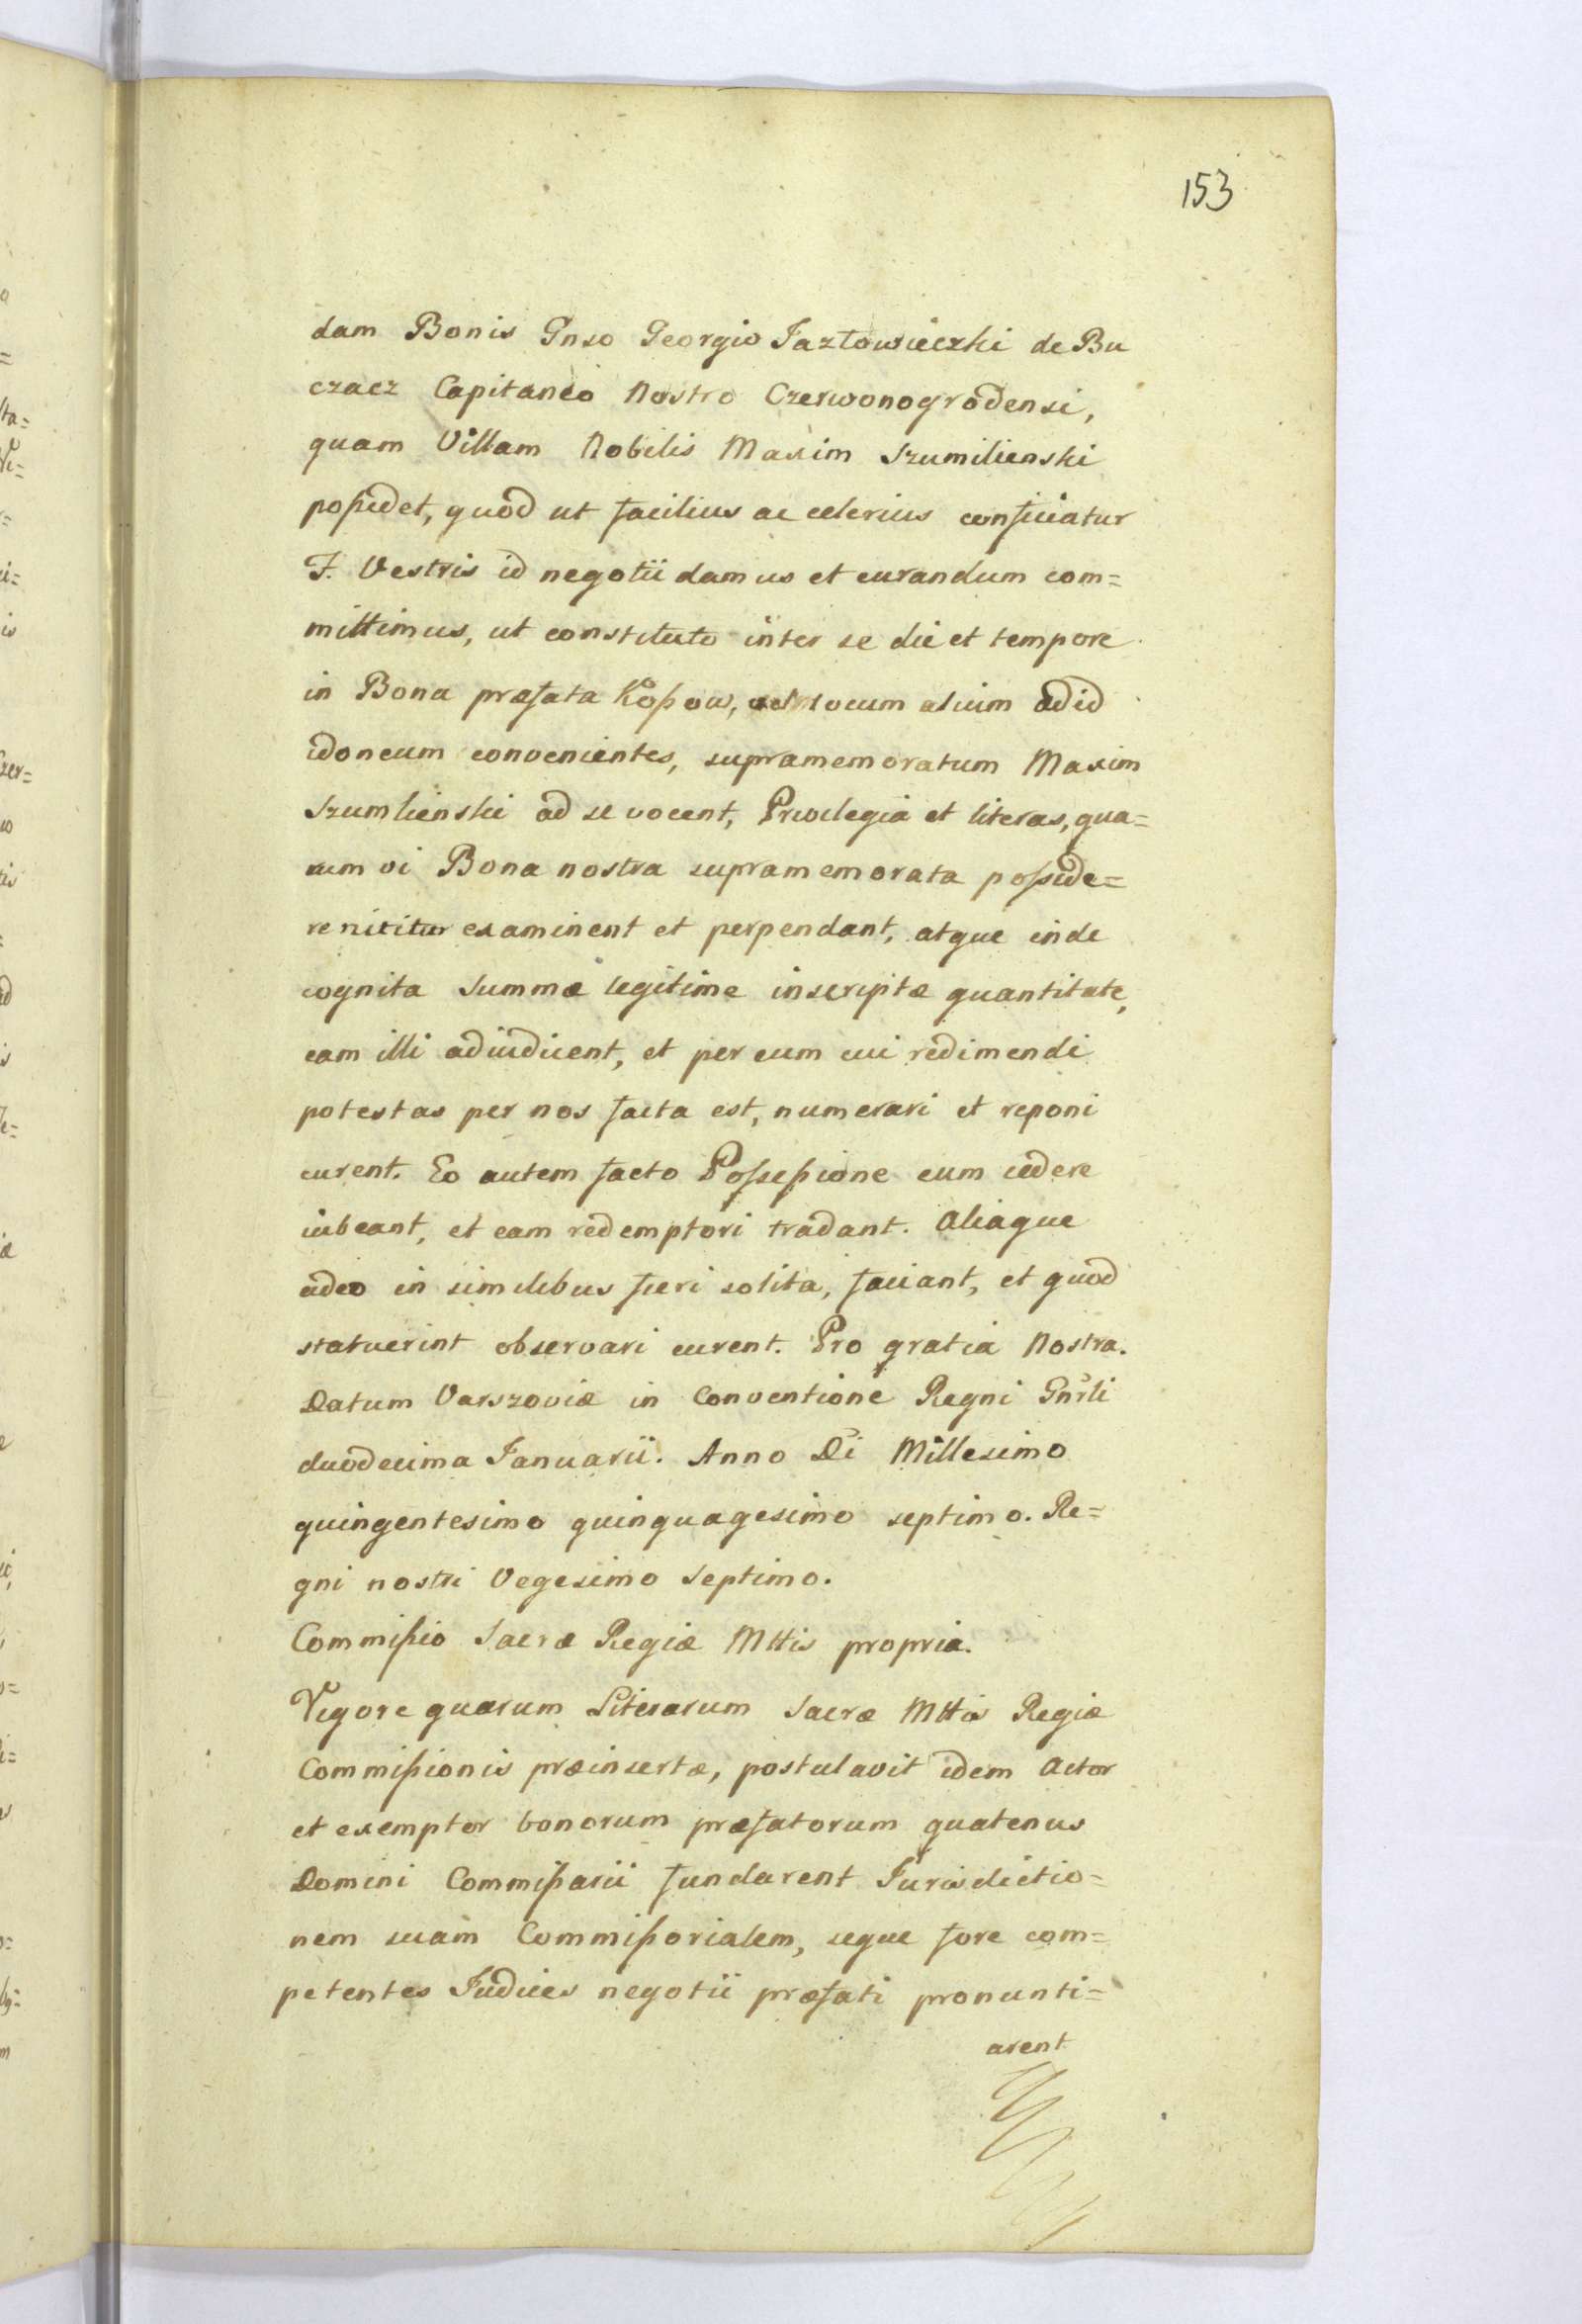 153
dam Bonis Gnso Georgio Jazłowieczki de Bu
czacz Capitaneo Nostro Czerwonogrodensi,
quam Villam Nobilis Maxim Szumilienski
possidet, quod ut facilius ac celerius conficiatur
F. Vestris id negotii damus et curandum com=
mittimus, ut constituto inter se die et tempore
in Bona præfata Kossow, locum alium ad id
idoneum convenientes, supramemoratum Maxim
Szumlienski ad se vocent, Privilegia et literas, qua=
rum vi Bona nostra supramemorata posside=
re nititur examinent et perpendant, atque inde
cognita Summæ legitime inscriptæ quantitate,
eam illi adiudicent, et per eum cui redimendi
potestas per nos facta est, numerari et reponi
curent. Eo autem facto Possessione eum cedere
iubeant, et eam redemptori tradant. Aliaque
adeo in similibus fieri solita, faciant, et quod
statuerint observari curent. Pro gratia Nostra.
Datum Varszoviæ in Conventione Regni Gnrli
duodecima Januarii. Anno Di Millesimo
quingentesimo quinquagesimo septimo. Re=
gni nostri Vegesimo Septimo.
Commissio Sacræ Regiæ Mttis propria.
Vigore quarum Literarum Sacræ Mttis Regiæ
Commissionis præinsertæ, postulavit idem Actor
et exemptor bonorum præfatorum quatenus
Domini Commissarii fundarent Jurisdictio=
nem suam Commissorialem, seque fore com=
petentes Judices negotii præfati pronunti=
arent